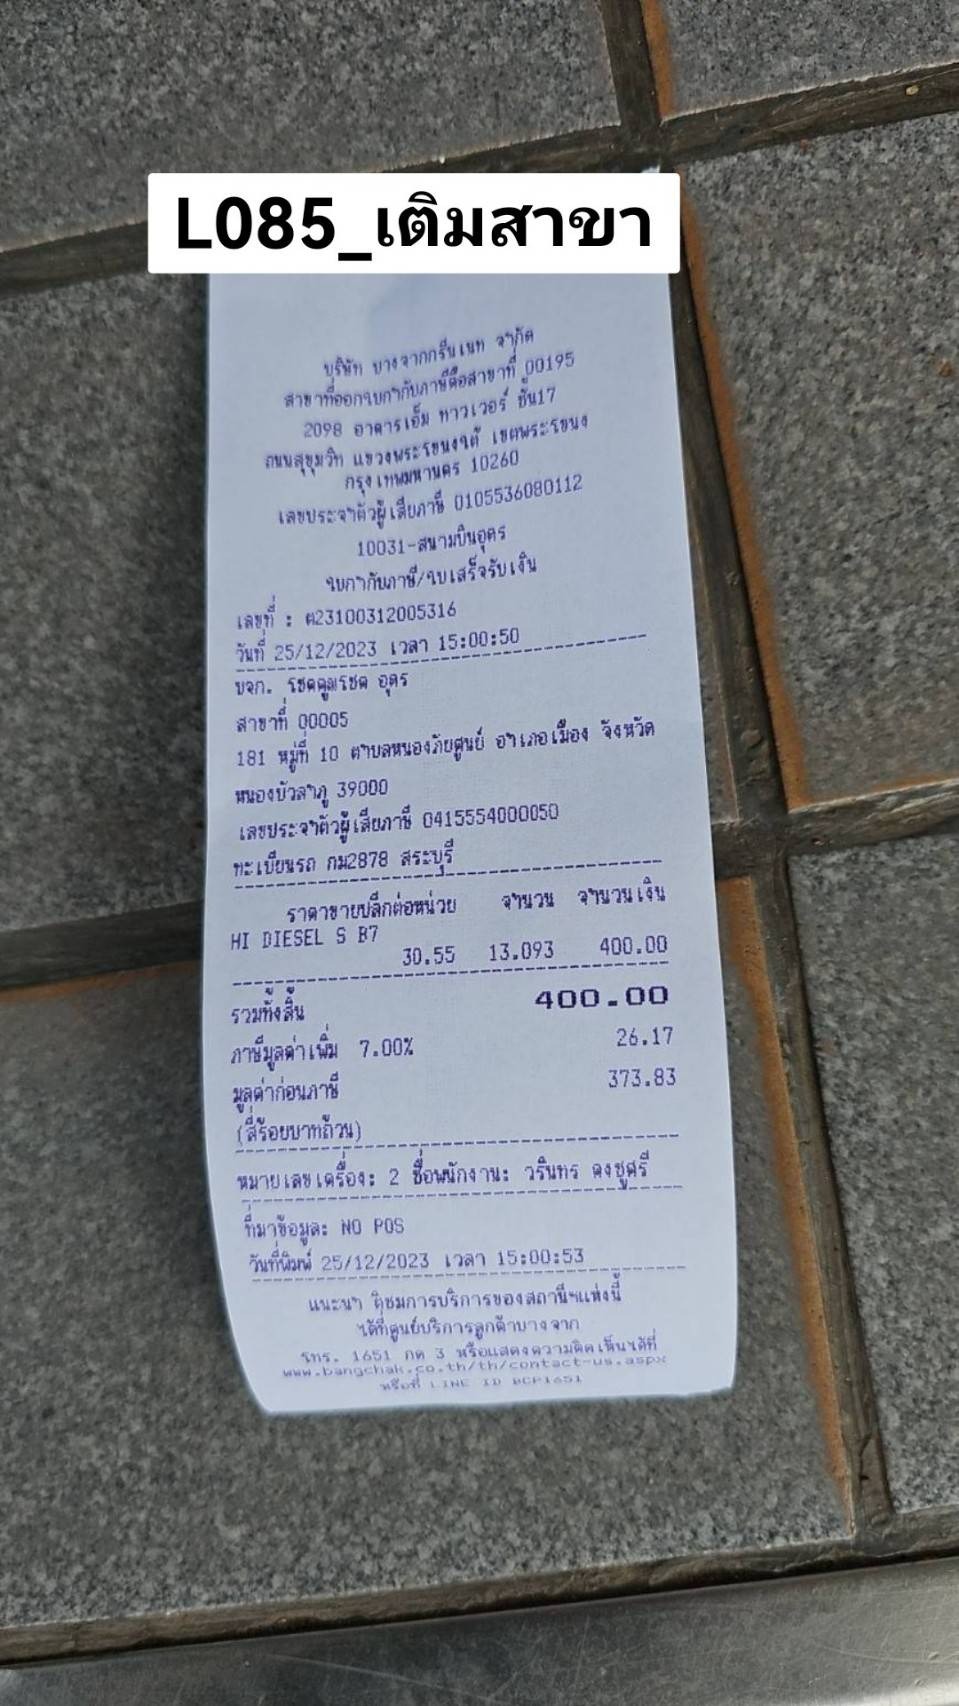 L085_เติมสาขา
บริษัท บางจากกรีนเนท จำกัด
สาขาที่ออกใบกำกับภาษีคือสาขาที่ 00195
2098 อาคารเอ็ม ทาวเวอร์ ชั้น17
ถนนสุขุมวิท แขวงพระโขนงใต้ เขตพระโขนง
กรุงเทพมหานคร 10260
เลขประจำตัวผู้เสียภาษี 0105536080112
10031-สนามบินอุดร
ใบกำกับภาษี/ใบเสร็จรับเงิน
เลขที่ : ต23100312005316
วันที่ 25/12/2023 เวลา 15:00:50
บจก. โชคคูมโชค อุดร
สาขาที่ 00005
181 หมู่ที่ 10 ตำบลหนองภัยศูนย์ อำเภอเมือง จังหวัด
หนองบัวลำภู 39000
เลขประจำตัวผู้เสียภาษี 0415554000050
ทะเบียนรถ กม2878 สระบุรี
ราคาขายปลีกต่อหน่วย จำนวน จำนวนเงิน
HI DIESEL S B7
30.55 13.093 400.00
รวมทั้งสิ้น 400.00
ภาษีมูลค่าเพิ่ม 7.00% 26.17
มูลค่าก่อนภาษี 373.83
(สี่ร้อยบาทถ้วน)
หมายเลขเครื่อง: 2 ชื่อพนักงาน: วรินทร คงชูศรี
ที่มาข้อมูล: NO POS
วันที่พิมพ์ 25/12/2023 เวลา 15:00:53
แนะนำ ติชมการบริการของสถานีฯแห่งนี้
ได้ที่ศูนย์บริการลูกค้าบางจาก
โทร. 1651 กด 3 หรือแสดงความคิดเห็นได้ที่
www.bangchak.co.th/th/contact-us.aspx
หรือที่ LINE ID BCP1651